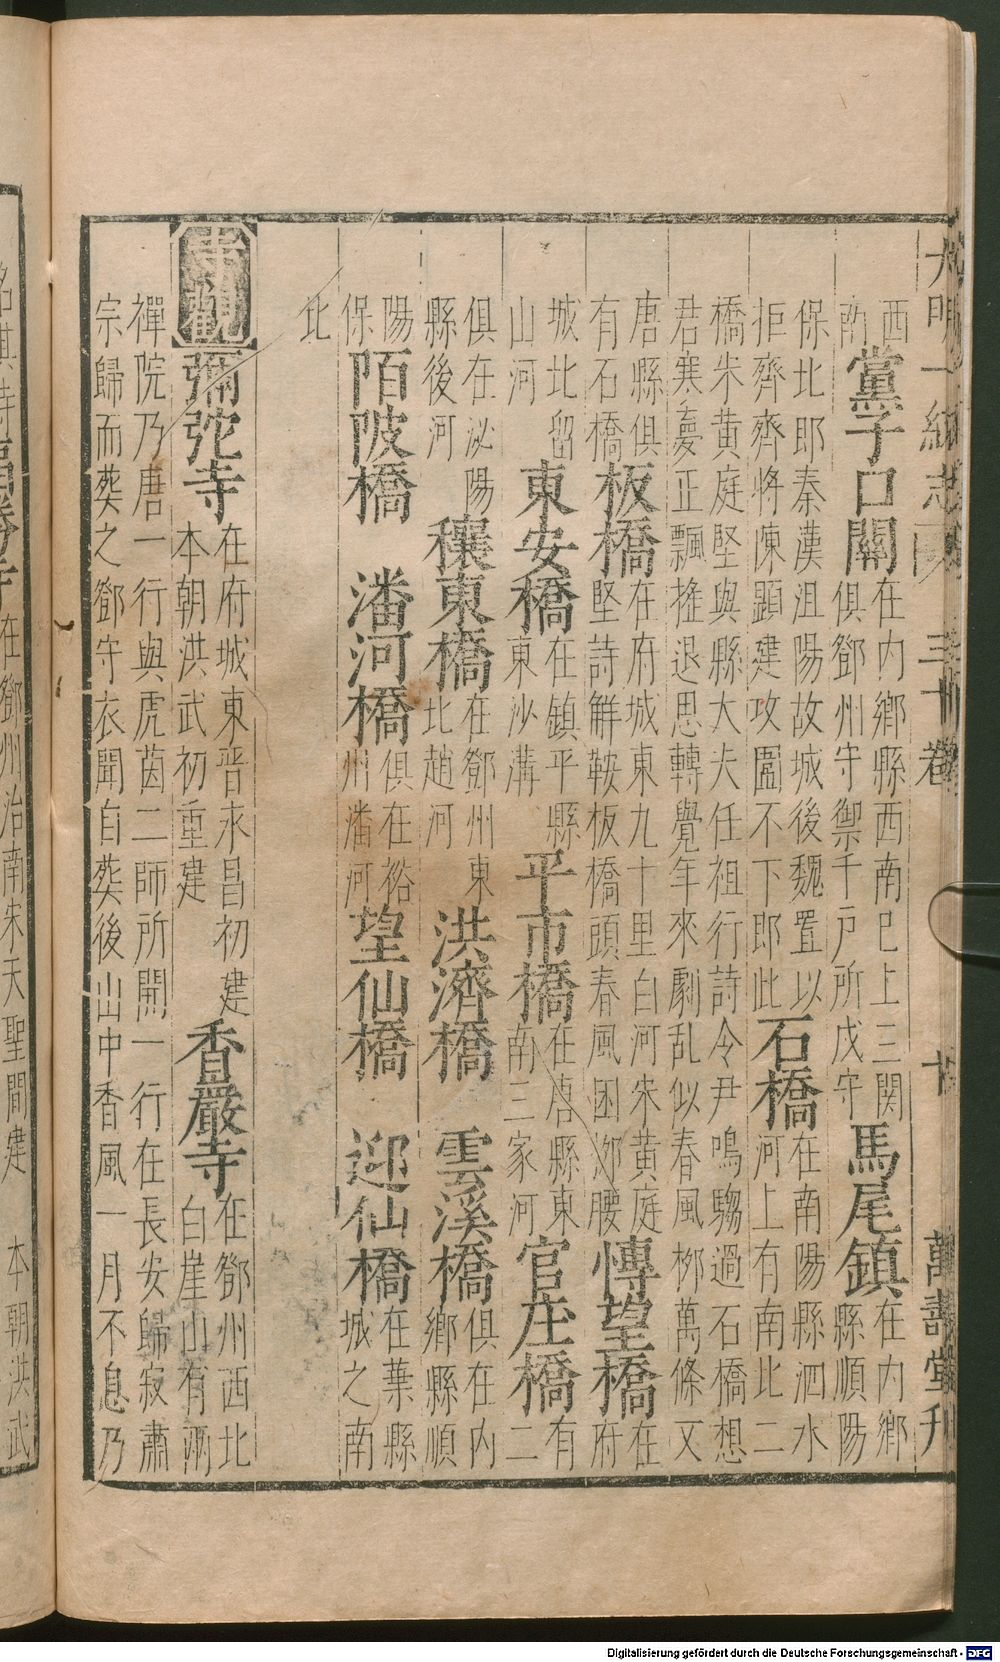 大明一統志 三十卷 十 萬壽堂刊
西南黨子口關在内鄉縣西南巳上三関俱鄧州守禦千戶所戍守馬尾鎮在内鄉縣順陽
保北郎秦漢沮陽故城後魏置以拒齊齊將陳顯建攻圍不下郎此石橋在南陽縣泗水河上有南北二
橋朱黄庭堅與縣大夫任祖行詩令尹鳴騶過石橋想君寒夢正飄搖退思轉覺年來劇乱似春風栁萬條又
唐縣俱有石橋板橋在府城東九十里白河宋黄庭堅詩解鞍板橋頭春風困栁腰博望橋在府
城北留山河東安橋在鎮平縣東沙溝平市橋在唐縣東南三家河官庄橋有二
俱在泌陽縣後河穰東橋在鄧州東北趙河洪濟橋 雲溪橋俱在内鄉縣順
陽保陌陂橋 潘河橋俱在裕州潘河望仙橋 迎仙橋在葉縣城之南
北
寺觀彌陀寺在府城東晋永昌初建本朝洪武初重建香嚴寺在鄧州西北白崖山有兩
禪院乃唐一行與虎茵二師所開一行在長安歸寂肅宗歸而葬之鄧守衣聞自葬後山中香風一月不息乃
在鄧州治南宋天聖間建 本朝洪武
Digitalisierung gefördert durch die Deutsche Forschungsgemeinschaft - DFG